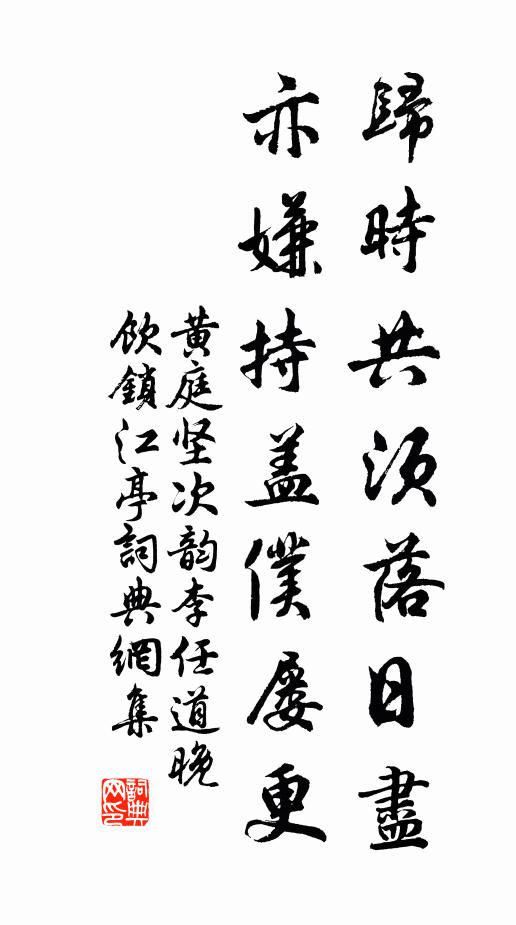 歸時共須落日盡
亦嫌持蓋僕屢更
黄庭坚次韵李任道晚
飲鎖江亭詞典網集
詞典
网印